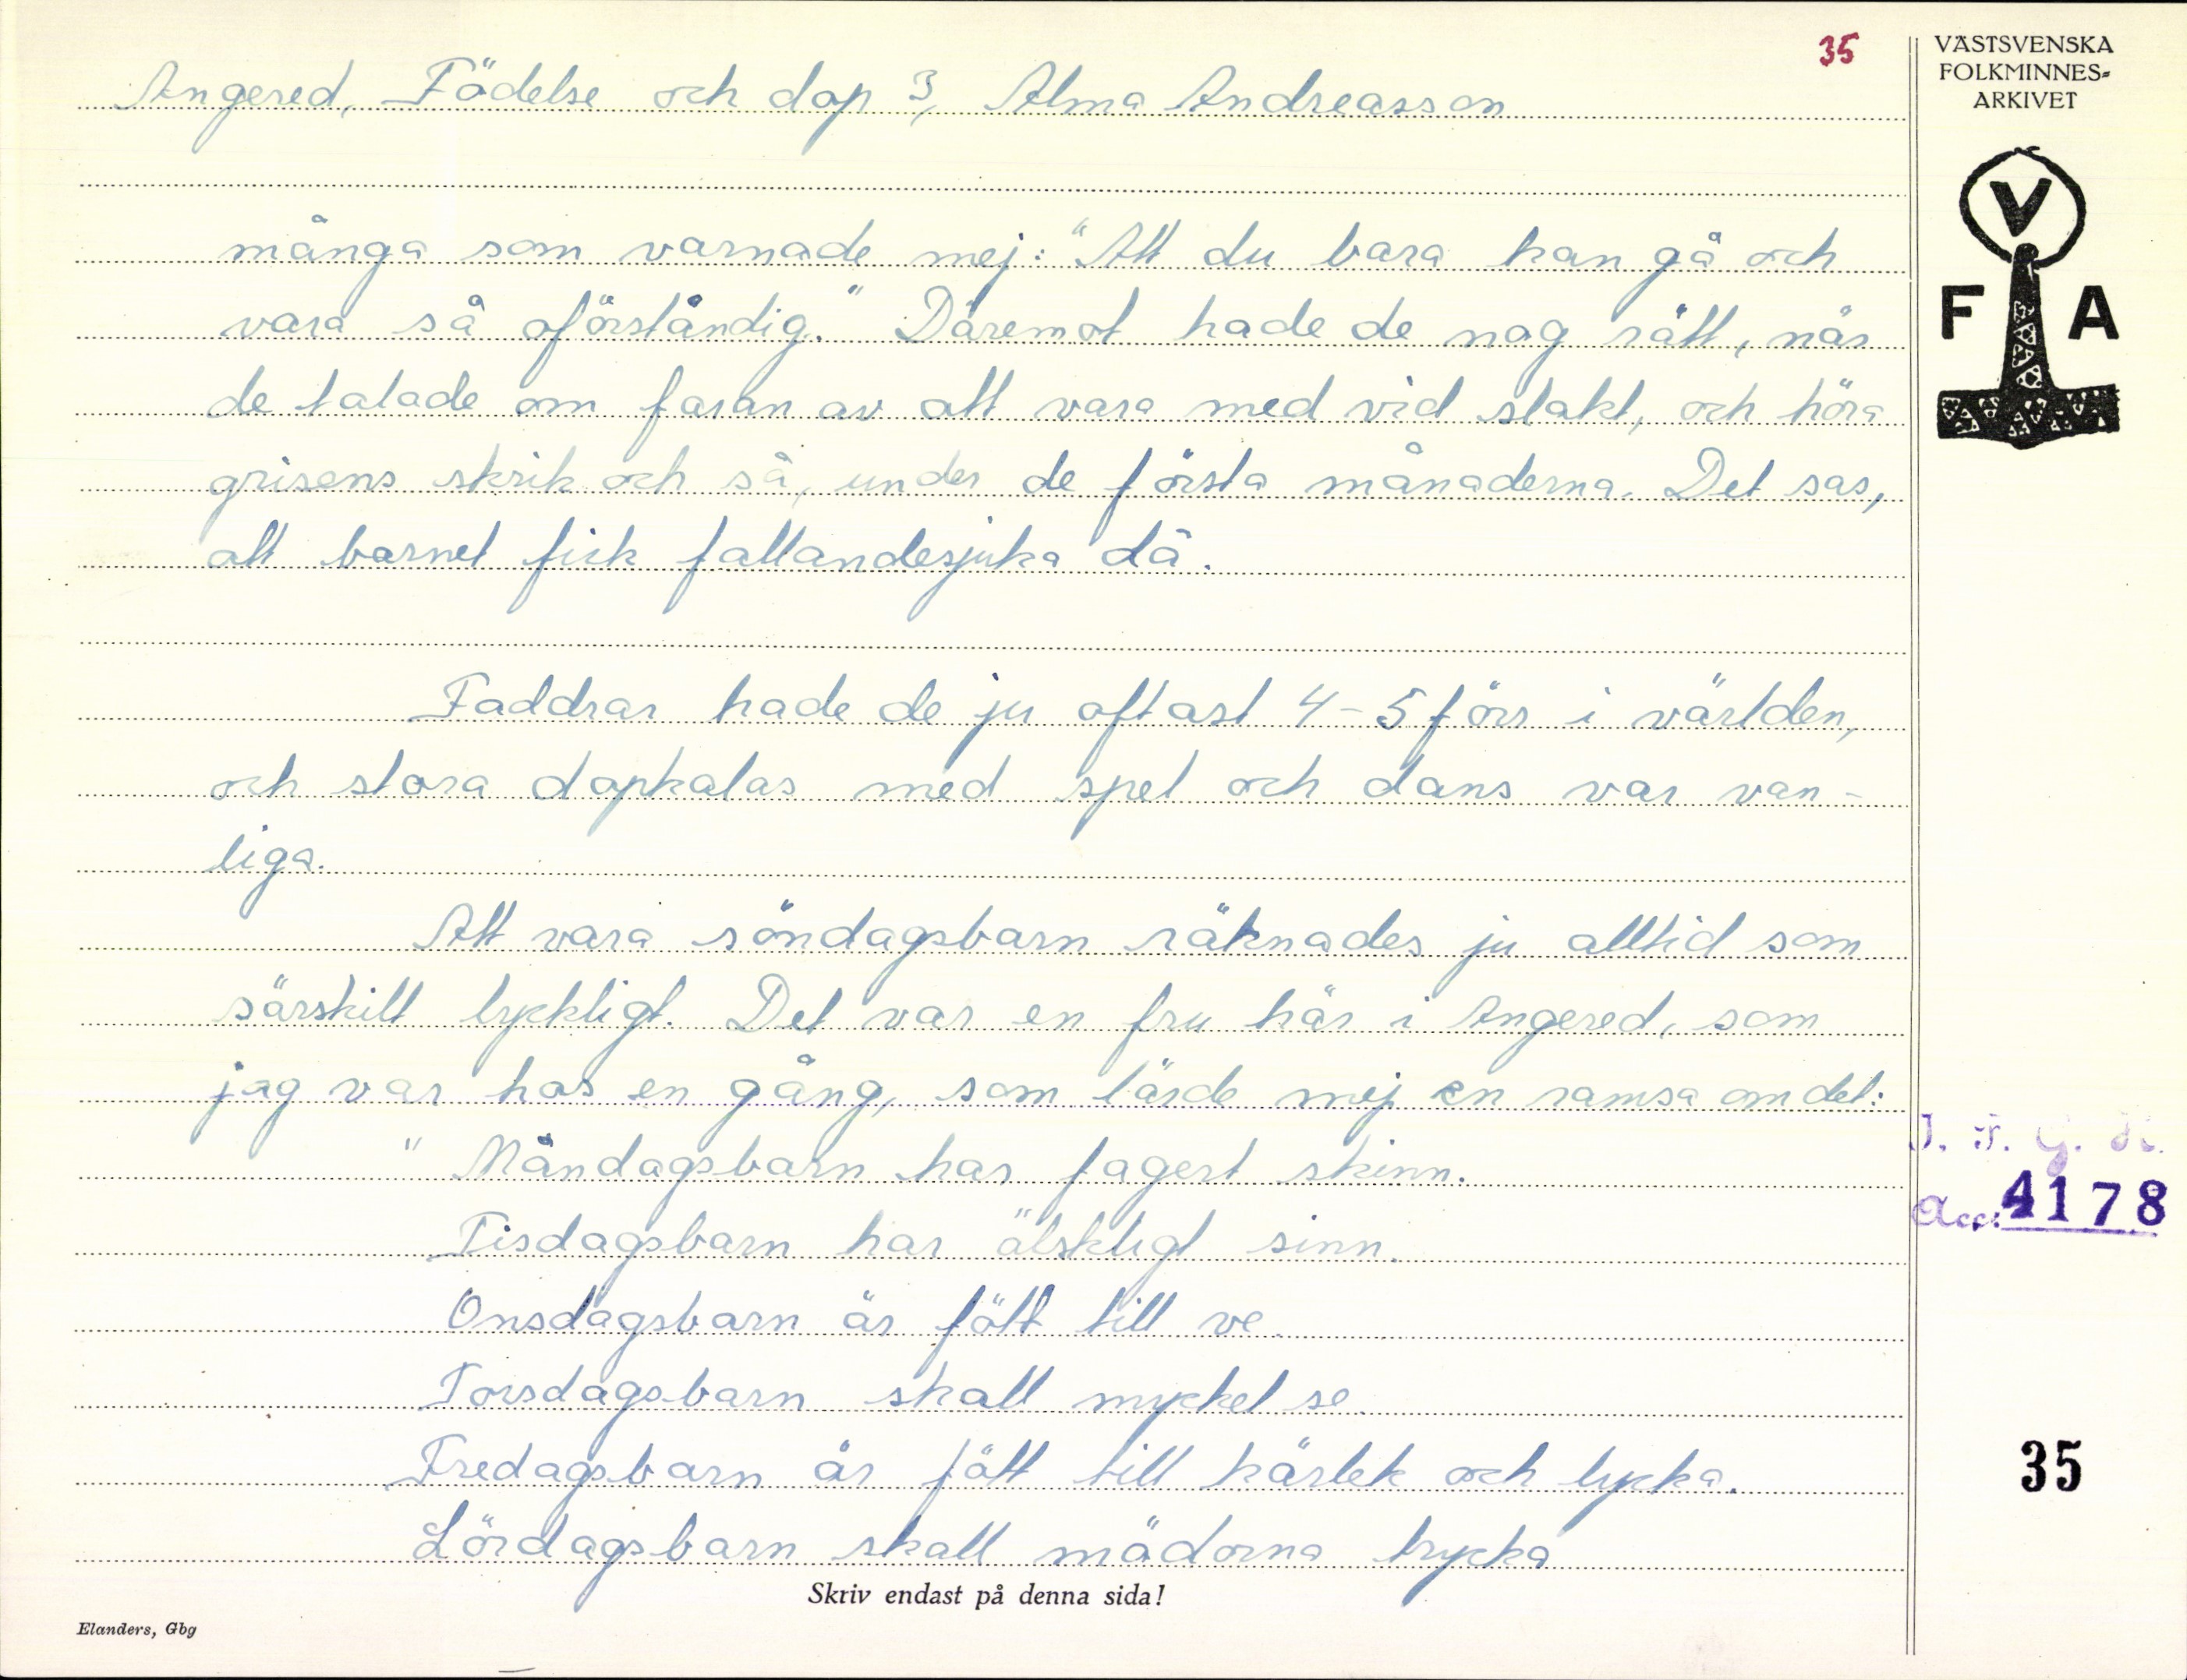 35
Angered, Födelse och dop 3, Alma Andreasson
många som varnade mej: "Att du bara kan gå och
vara så oförståndig." Däremot hade de nog rätt, när
de talade om faran av att vara med vid slakt, och höra
grisens skrik och så, under de första månaderna. Det sas,
att barnet fick fallandesjuka då.
Faddrar hade de ju oftast 4-5 förr i världen,
och stora dopkalas med spel och dans var van-
liga.
Att vara söndagsbarn räknades ju alltid som
särskilt lyckligt. Det var en fru här i Angered, som
jag var hos en gång, som lärde mej en ramsa om det:
" Måndagsbarn har fagert skinn.
Tisdagsbarn har älskligt sinn.
Onsdagsbarn är fött till ve.
Torsdagsbarn skall mycket se.
Fredagsbarn är fött till kärlek och lycka.
Lördagsbarn skall mödorna trycka
Skriv endast på denna sida!
Elanders, Gbg
VÄSTSVENSKA
FOLKMINNES-
ARKIVET
V
F A
I. F. G. H.
Acc: 4178
35